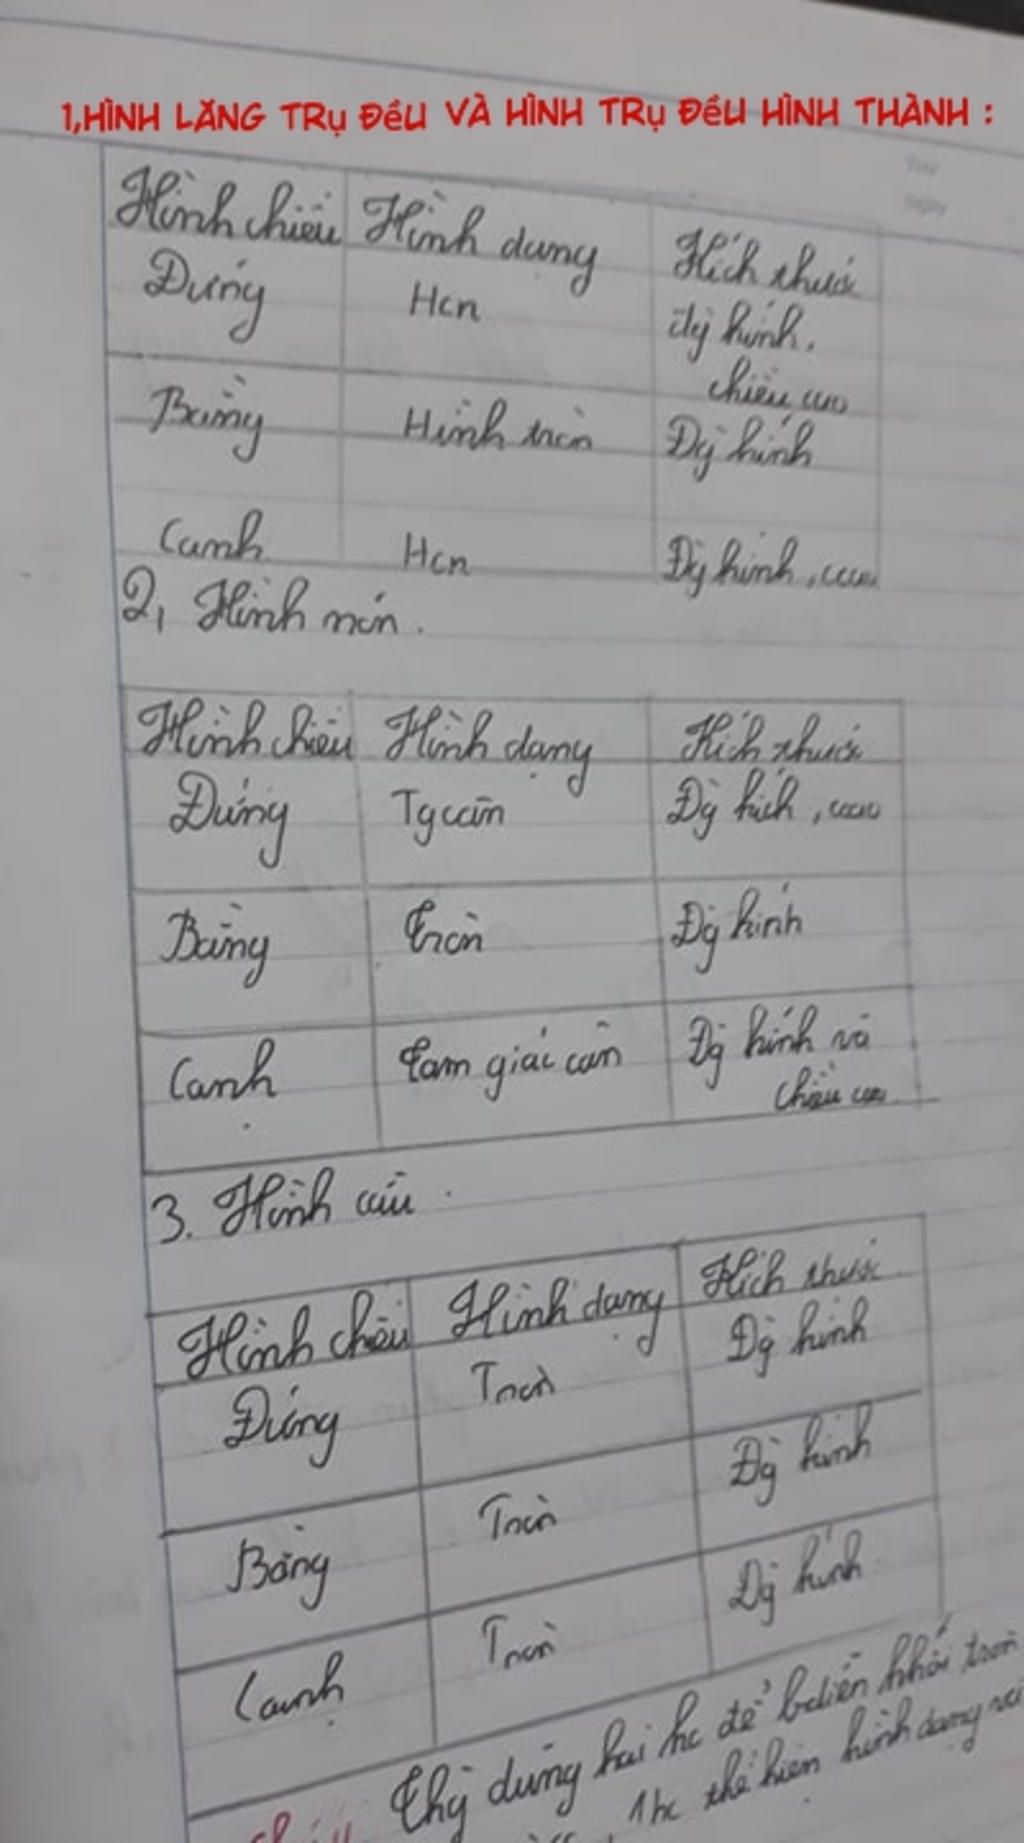 1,HÌNH LĂNG TRỤ ĐỀU VÀ HÌNH TRỤ ĐỀU HÌNH THÀNH :
Hình chiếu Hình dạng Kích thước
Đứng Hcn đg kính,
chiều cao
Bằng Hình tròn Đg kính
Cạnh Hcn Đg kính, cao
2, Hình nón.
Hình chiếu Hình dạng Kích thước
Đứng Tg cân Đg kích, cao
Bằng Tròn Đg kính
Cạnh Tam giác cân Đg kính và
chiều cao
3. Hình cầu
Hình chiếu Hình dạng Kích thước
Đứng Tròn Đg kính
Bằng Tròn Đg kính
Cạnh Tròn Đg kính
Thg dùng hai hc để bdiễn khối tròn
1hc thể hiện hình dạng và